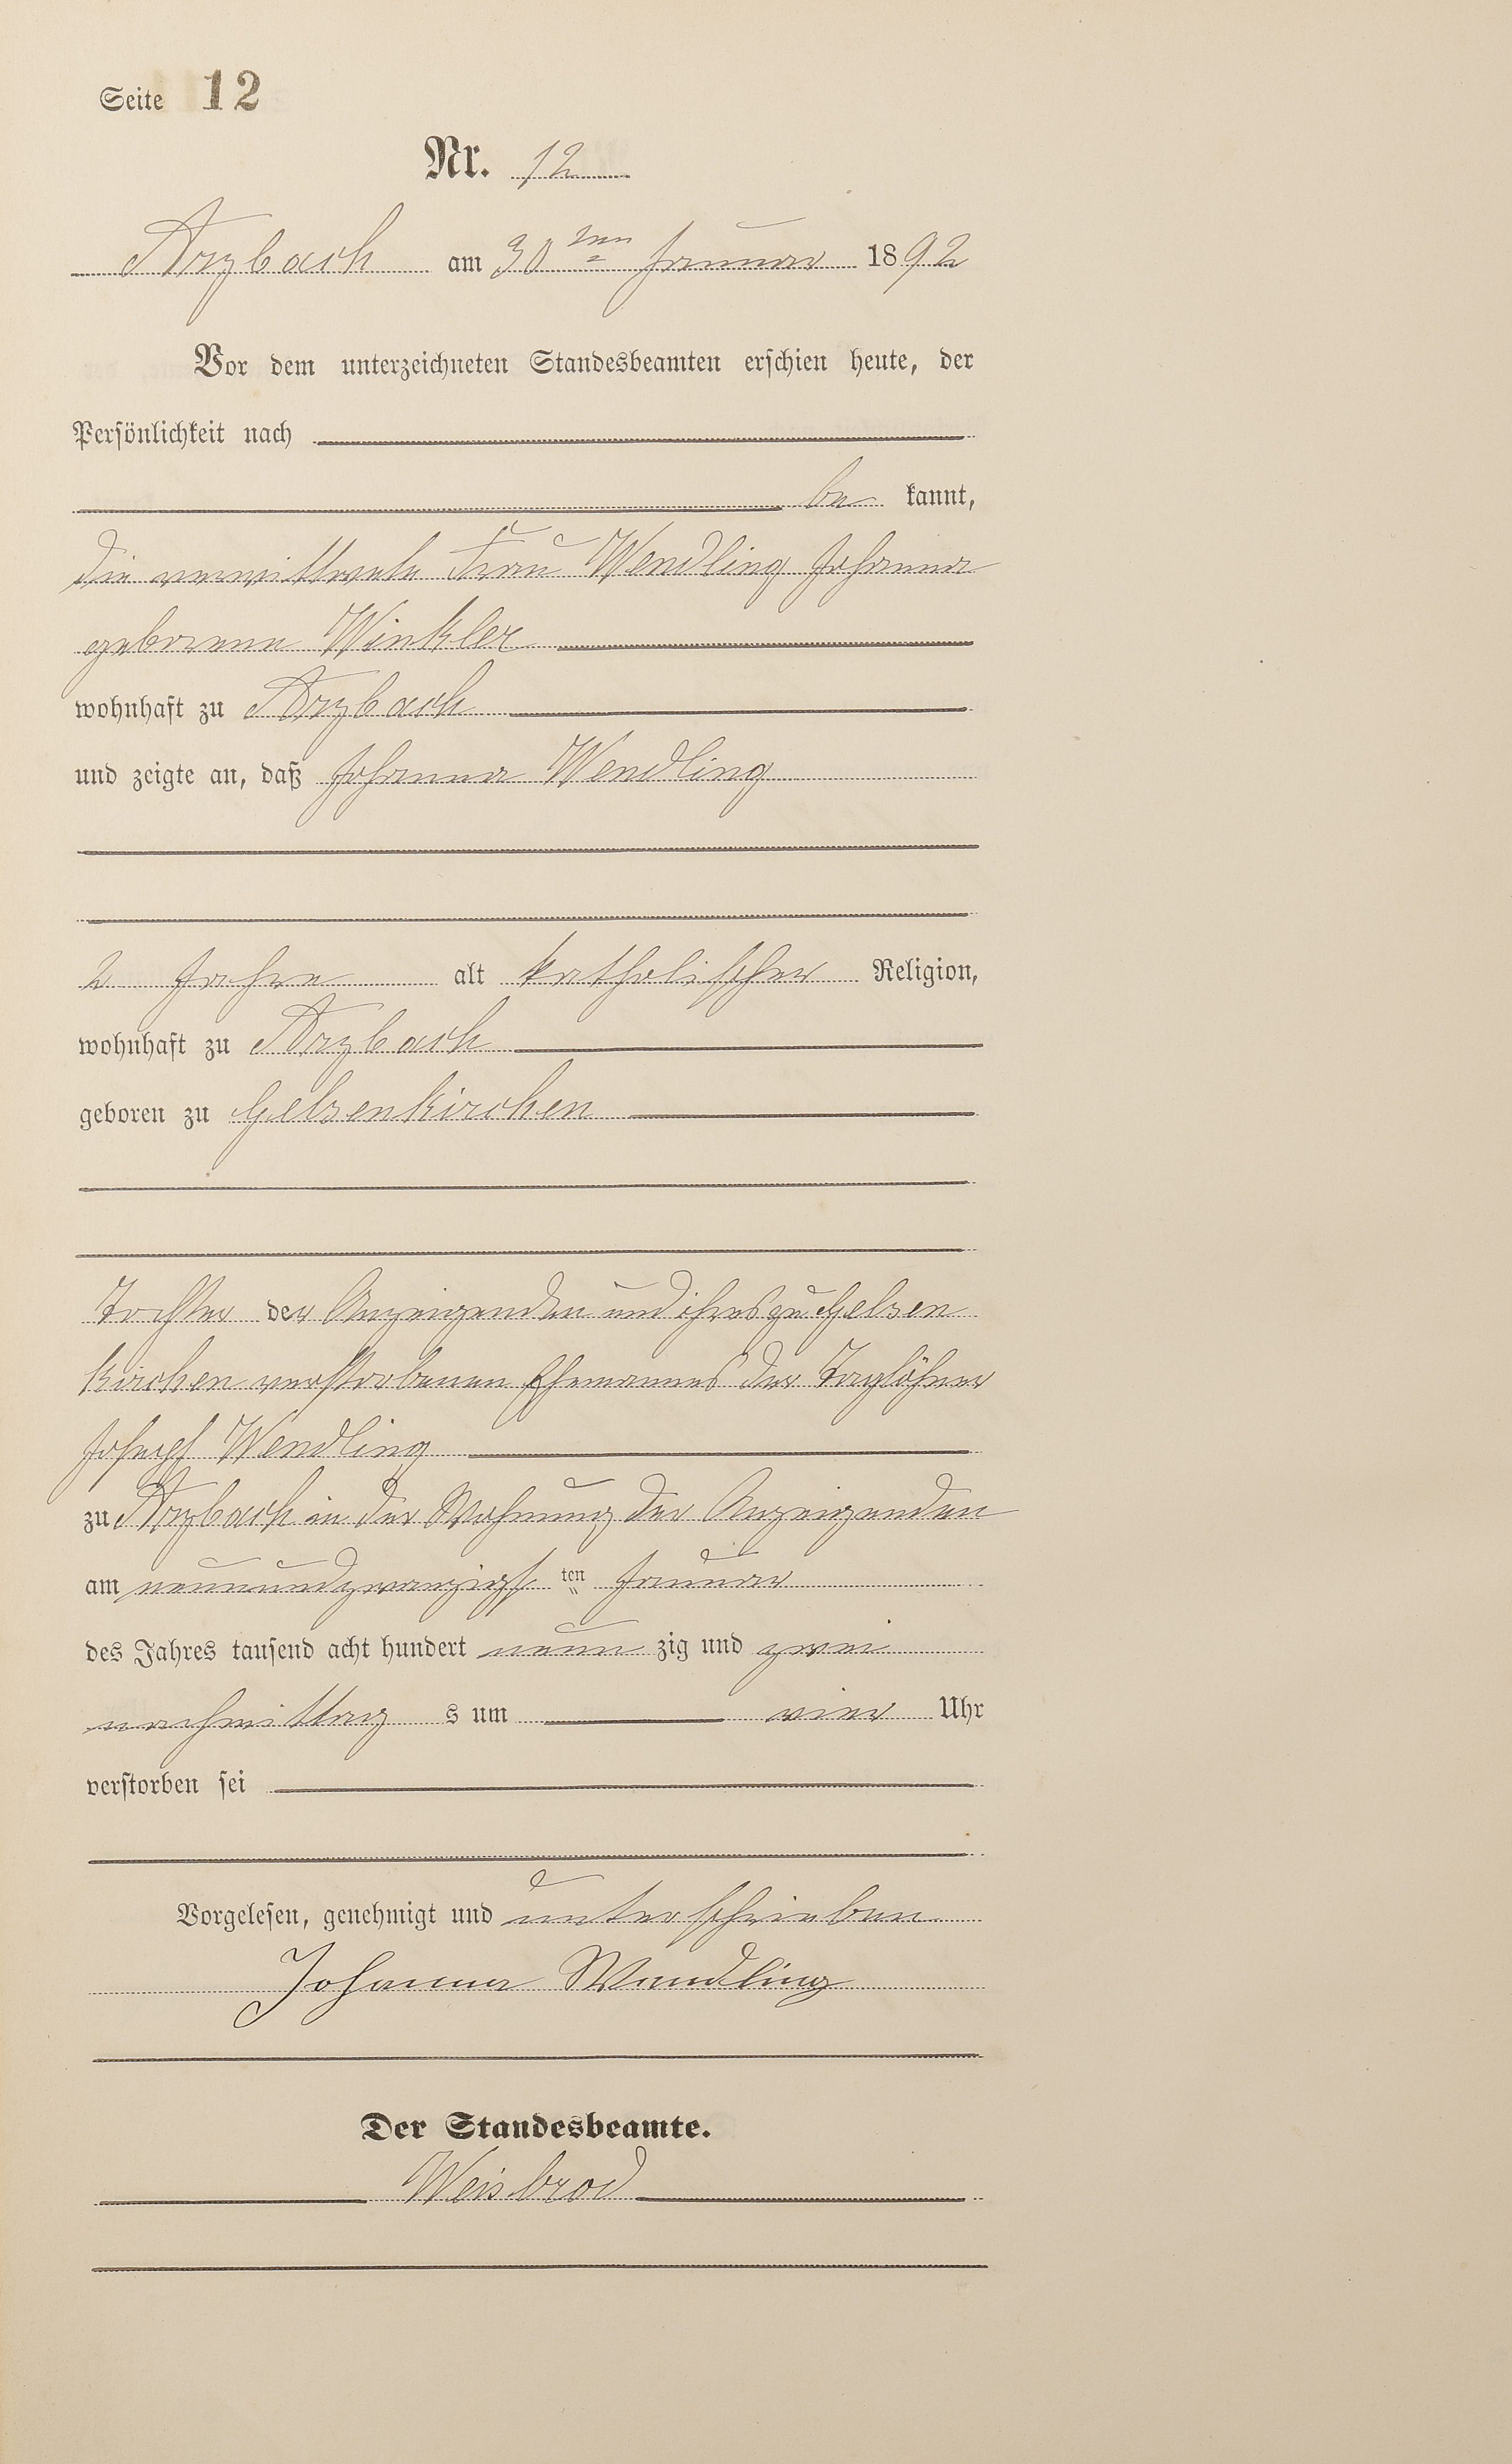 Seite 12
Nr. 12
Arzbach am 30ten Januar 1892
Vor dem unterzeichneten Standesbeamten erschien heute, der
Persönlichkeit nach
be kannt,
die verwittwete Frau Wendling Johanna
geborene Winkler
wohnhaft zu Arzbach
und zeigte an, daß Johanna Wendling
2 Jahre alt katholischer Religion,
wohnhaft zu Arzbach
geboren zu Gelsenkirchen
Tochter der Anzeigenden und ihres zu Gelsen
kirchen verstorbenen Ehemannes der Taglöhner
Joseph Wendling
zu Arzbach in der Wohnung der Anzeigenden
am neunundzwanzigsten Januar
des Jahres tausend acht hundert neun zig und zwei
nachmittag s um vier Uhr
verstorben sei
Vorgelesen, genehmigt und unterschrieben
Johanna Wendling
Der Standesbeamte.
Weisbrod